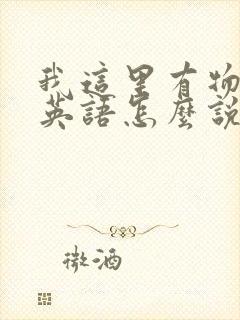 我這里有物
英語怎麼說
微酒